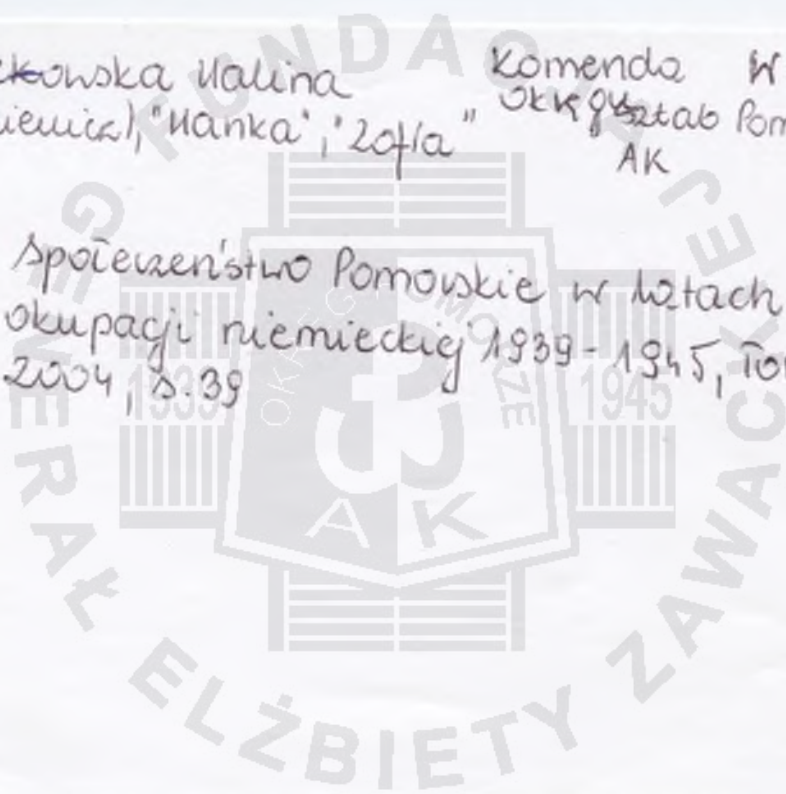 ckowska Halina
iewicz), "Hanka", "Zofia"
Komenda W
Okręgu sztab Pom
AK
Społeczeństwo Pomorskie w latach
okupacji niemieckiej 1939-1945, Tor
2004, s.39
FUNDACJA
GENERAŁ ELŻBIETY ZAWACKIEJ
OKRĘG POMORZE
1939
1945
AK